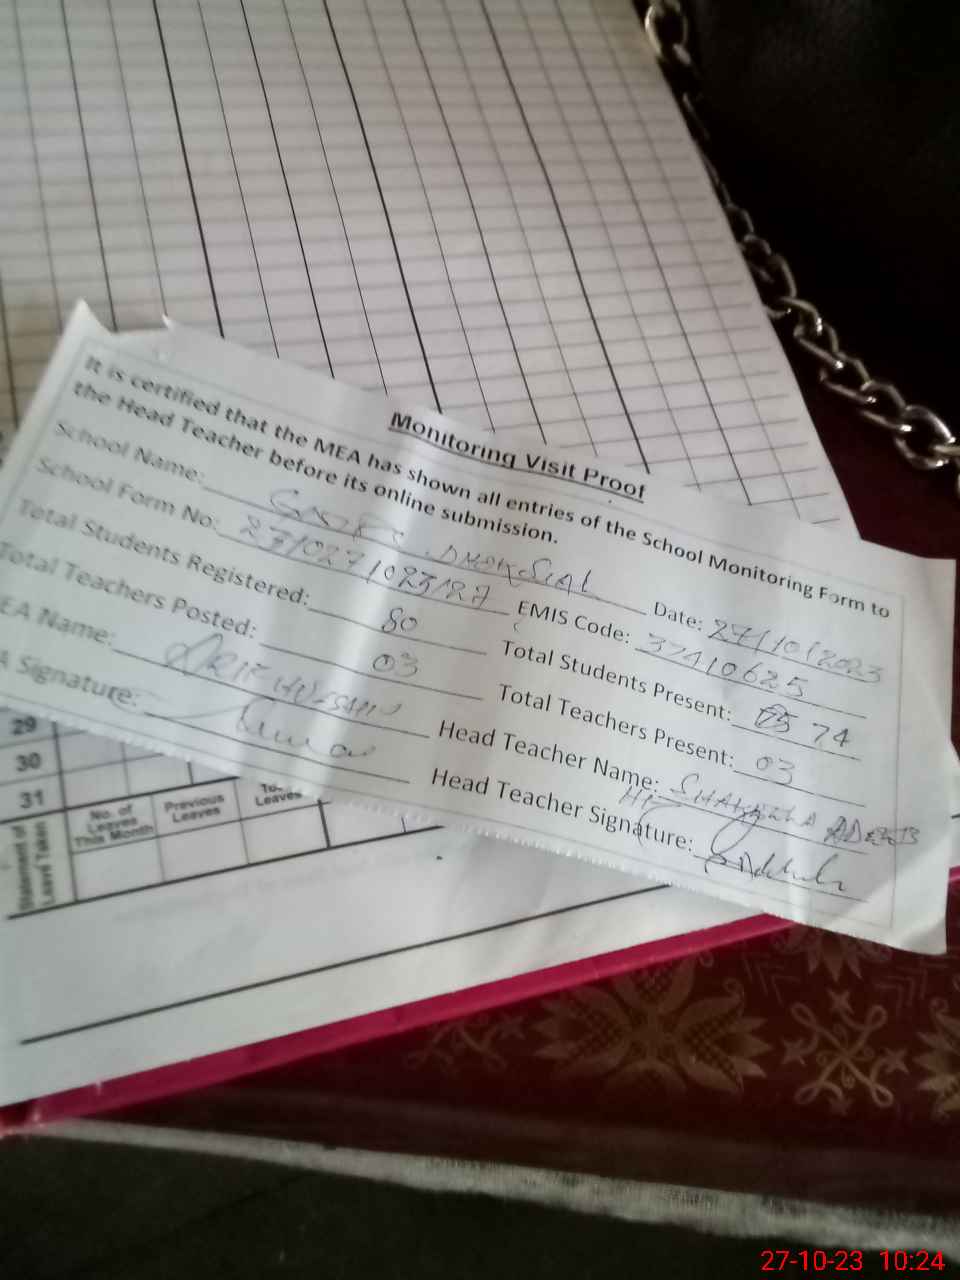 Monitoring Visit Proof
It is certified that the MEA has shown all entries of the School Monitoring Form to
the Head Teacher before its online submission.
School Name: DHOK SIAL Date: 27/10/2023
School Form No: EMIS Code: 37410625
Total Students Registered: 80 Total Students Present: 74
Total Teachers Posted: 03 Total Teachers Present: 03
EA Name: ARIF HUSSAIN Head Teacher Name: SHAKEELA ADEEB
A Signature: Head Teacher Signature:
29
30
31
Statement of
Leave Taken
No. of
Leaves
This Month
Previous
Leaves
Leaves
27-10-23 10:24